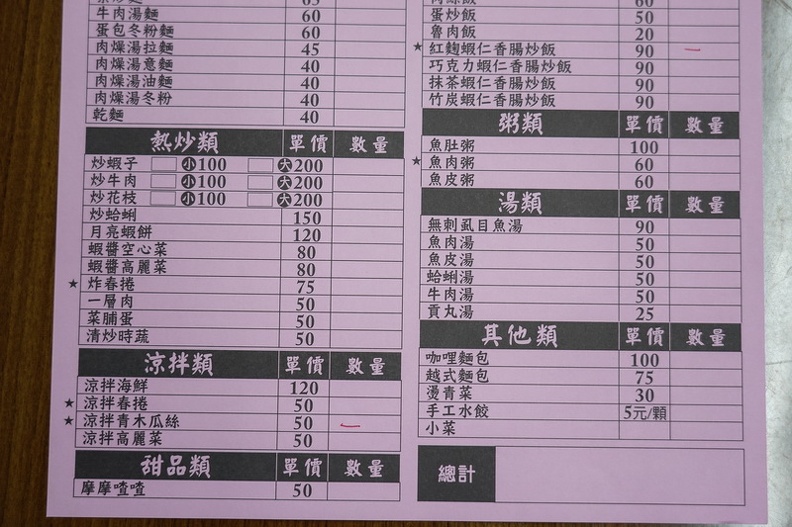 牛肉湯麵 60
蛋包冬粉麵 60
肉燥湯拉麵 45
肉燥湯意麵 40
肉燥湯油麵 40
肉燥湯冬粉 40
乾麵 40
熱炒類 單價 數量
炒蝦子 小100 大200
炒牛肉 小100 大200
炒花枝 小100 大200
炒蛤蜊 150
月亮蝦餅 120
蝦醬空心菜 80
蝦醬高麗菜 80
★ 炸春捲 75
一層肉 50
菜脯蛋 50
清炒時蔬 50
涼拌類 單價 數量
涼拌海鮮 120
★ 涼拌春捲 50
★ 涼拌青木瓜絲 50 一
涼拌高麗菜 50
甜品類 單價 數量
摩摩喳喳 50
蛋炒飯 50
魯肉飯 20
★ 紅麴蝦仁香腸炒飯 90 一
巧克力蝦仁香腸炒飯 90
抹茶蝦仁香腸炒飯 90
竹炭蝦仁香腸炒飯 90
粥類 單價 數量
魚肚粥 100
★ 魚肉粥 60
魚皮粥 60
湯類 單價 數量
無刺虱目魚湯 90
魚肉湯 50
魚皮湯 50
蛤蜊湯 50
牛肉湯 50
貢丸湯 25
其他類 單價 數量
咖哩麵包 100
越式麵包 75
燙青菜 30
手工水餃 5元/顆
小菜
總計